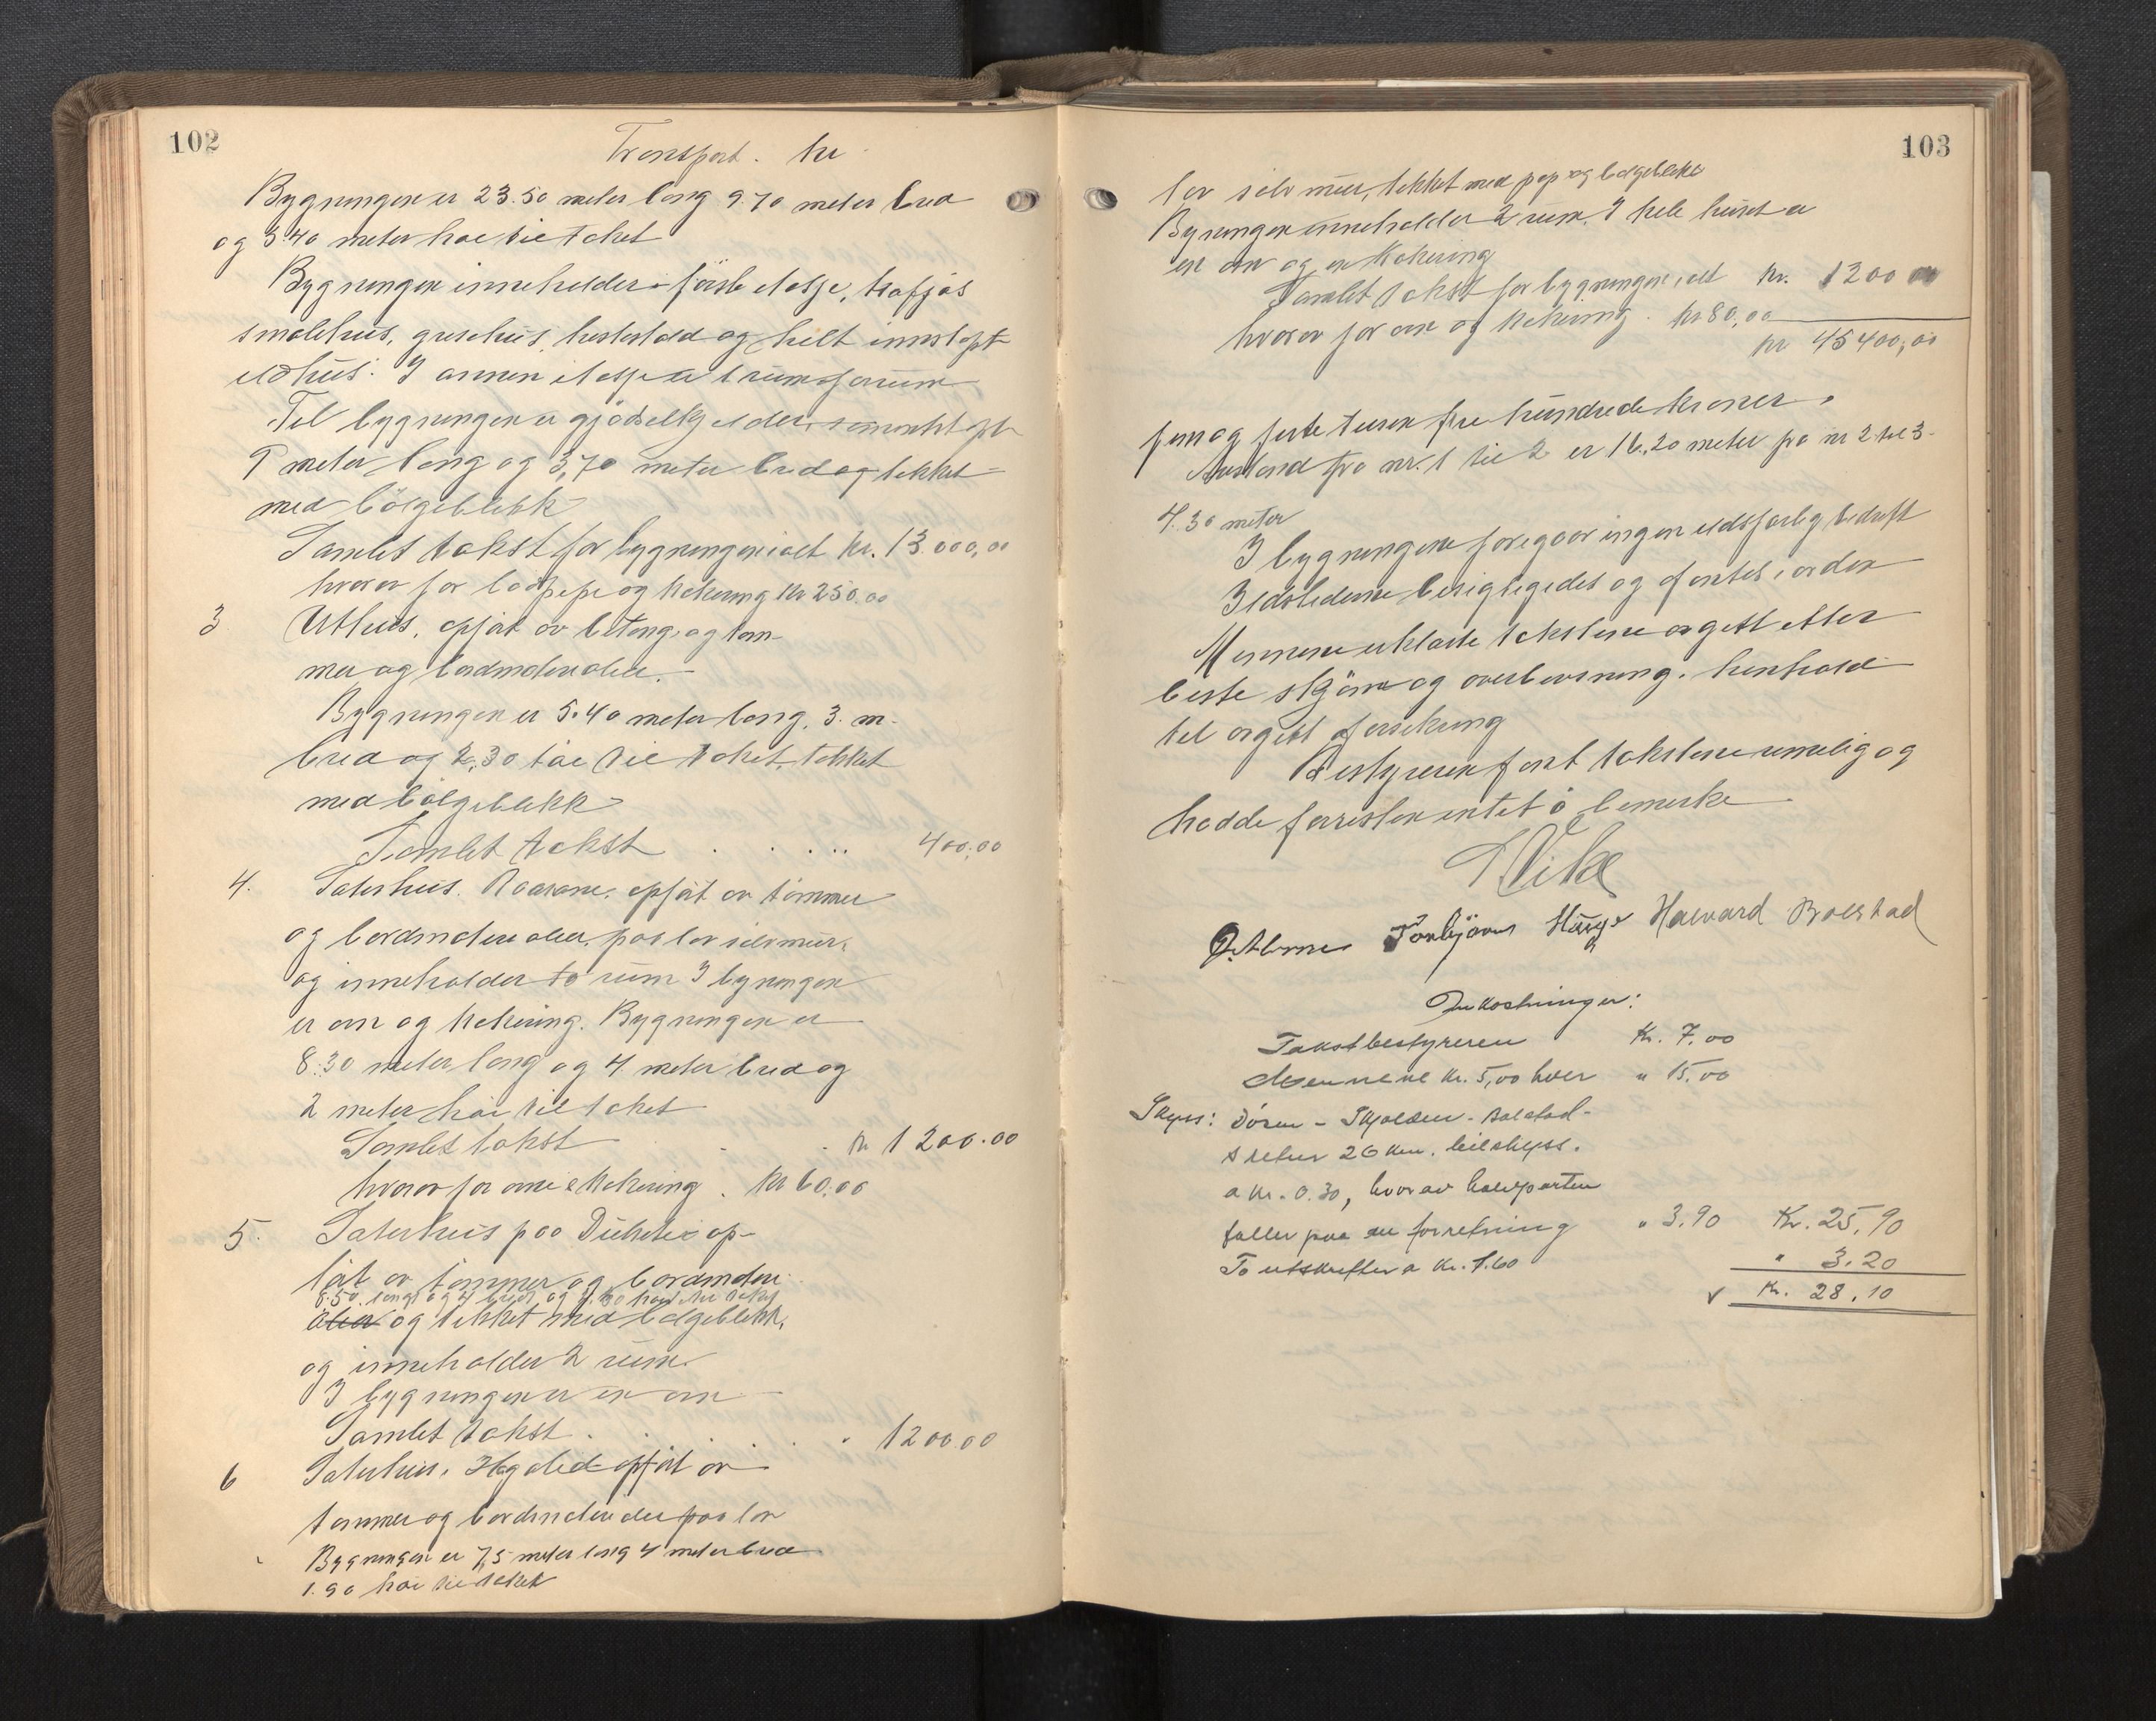 102
Transport. kr
Bygningen er 23.50 meter lang 9.70 meter bred
og 3.40 meter høi til taket
Bygningen inneholder i første etasje,
smalehus, grisehus, hestestald og helt innstøpt
eldhus. I annen etasje er
Til bygningen er gjødselkjelder
9 meter lang og 3,70 meter bred og tekket
med bölgeblekk
Samlet takst for bygningen ialt kr. 13.000,00
hvorav for og kr 250.00
3 Uthus, opfört av betong og töm-
mer og bordmaterialer.
Bygningen er 5.40 meter lang, 3. m.
bred og 2,30 høi til taket, tekket
med bölgeblekk
Samlet takst . . . . . 400,00
4. Säterhus. opfört av tömmer
og bordmaterialer, paa
og inneholder to rum I bygningen
er ovn og Bygningen er
8.30 meter lang og 4 meter bred og
2 meter høi til taket
Samlet takst . . kr 1200.00
hvorav for ovn & . kr 60,00
5. Säterhus paa op-
ført av tømmer og bordmateri
8.50 lang og 4 bred og høi til tak
aler og tekket med bølgeblekk,
og inneholder 2 rum.
I bygningen er en ovn
Samlet takst . . . . . 1200.00
6 Säterhus, opført av
tømmer og bordmaterialer paa
Bygningen er 7,5 meter lang 4 meter bred
1.90 høi til taket
103
mur, tekket med pap og bølgeblekk
Bygningen inneholder 2 rum. I hele huset er
en ovn og en
Samlet takst for bygningen, alt kr. 1200 00
hvorav for ovn og kr 80,00
kr 45400,00
fem og førti tusen fire hundrede kroner.
Avstand fra nr. 1 til 2 er 16,20 meter fra nr 2 til 3
4.30 meter
I bygningene foregaar ingen ildsfarlig bedrift
Ildstederne besigtigedes og fantes i orden
Mennene erklærte takstene avgitt efter
beste skjønn og overbevisning. henhold
til avgitt forsikring
Bestyreren fant takstene rimelig og
hadde forresten intet å bemerke
Vike
Torbjörn Hauge Halvard Bolstad
Omkostninger:
Takstbestyreren Kr. 7,00
Mennene kr. 5,00 hver " 15,00
Skyss: Døsen - Skjolden - Bolstad -
retur 26 km. bilskyss.
a kr. 0.30, hvorav halvparten
faller paa en forretning " 3.90 Kr. 25,90
To utskrifter a kr. 1.60 " 3,20
√ Kr. 28,10